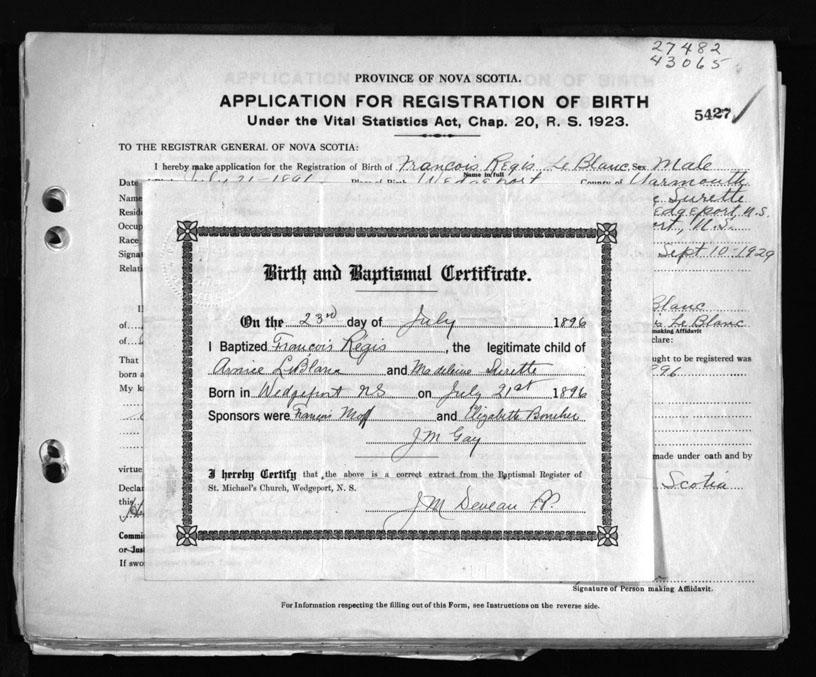 27482
43065
PROVINCE OF NOVA SCOTIA.
APPLICATION FOR REGISTRATION OF BIRTH
5427
Under the Vital Statistics Act, Chap. 20, R. S. 1923.
TO THE REGISTRAR GENERAL OF NOVA SCOTIA:
I hereby make application for the Registration of Birth of Francois Regis Le Blanc Sex Male
Name in full
Date July 21-1896 Place of Birth Wedgeport County of Yarmouth
Name Surette
Resid edgeport, N.S.
Occup ort, N.S.
Race
Signat Sept 10-1929
Relati
Birth and Baptismal Certificate.
On the 23rd day of July 1896
I Baptized François Régis, the legitimate child of
LeBlanc and Madeleine Surette
Born in Wedgeport NS on July 21st 1896
Sponsors were François and Elizabeth
J M Gay
I hereby Certify that the above is a correct extract from the Baptismal Register of
St. Michael's Church, Wedgeport, N. S.
J M Deveau P.P.
Blanc
of Le Blanc
making Affidavit
of clare:
That ought to be registered was
born a 896
My k
made under oath and by
virtue
Declar Scotia
this
Commi
or Just
If swo
Signature of Person making Affidavit.
For Information respecting the filling out of this Form, see Instructions on the reverse side.